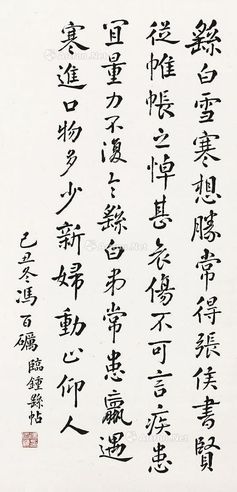 繇白雪寒想勝常得張侯書賢
從帷帳之悼甚哀傷不可言疾患
宜量力不復令繇白弟常患羸遇
寒進口物多少新婦動止仰人
己丑冬馮百礪臨鍾繇帖